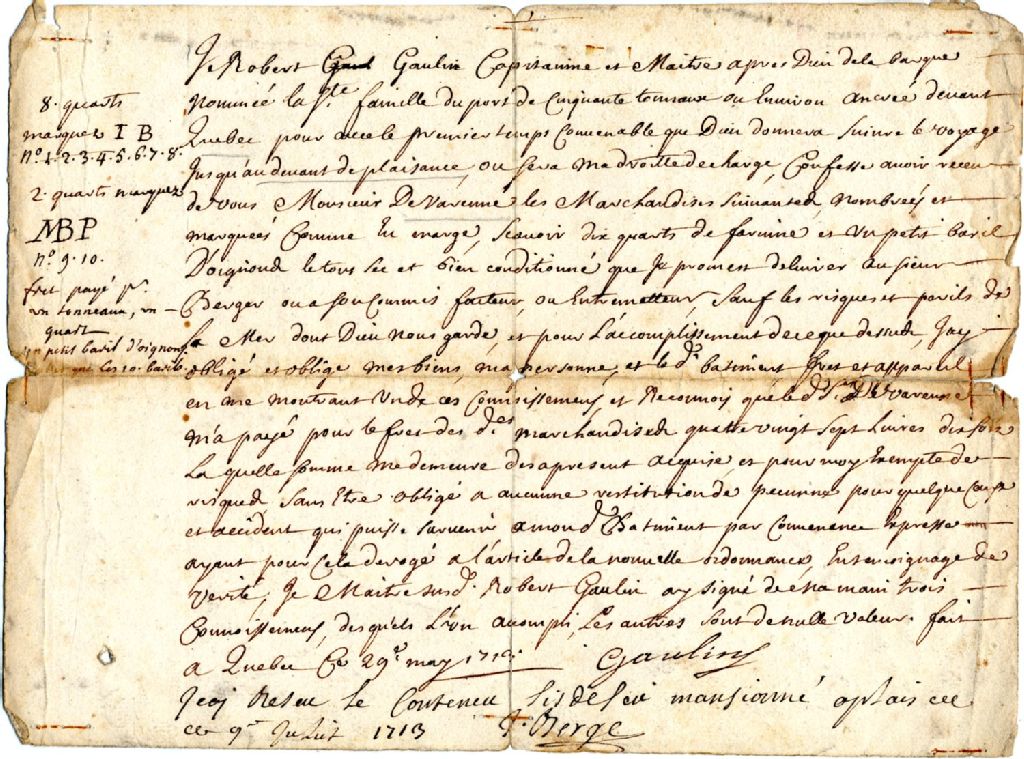 8. quarts
marquez I B
nº.1.2.3.4.5.6.7.8.
2. quarts marquez
MBP
nº 9.10.
fret payé pr.
un tonneaux, un
quart
un petit baril d'oignons
les 10. barils.
Je Robert Gaulin Capitainne et Maitre apres Dieu dela barque
nommée la Ste. famille du port de Cinquante tonnaux ou Environ ancréé devant
Quebec pour avec le premier temps Convenable que Dieu donnera Suivre le voyage
Jusqu'au devant de plaisance, ou sera ma droitte decharge, Confesse avoir receu
de vous Monsieur De Varenne les Marchandises Suivantes, nombreés et
marqueés Comme En marge, Scavoir dix quarts de farinne et un petit baril
D'oignons le tous Sec et bien conditionné que Je promest delivrer au Sieur
Berger ou a son Commis facteur, ou Entrematteur Sauf les risques et perils de
La Mer dont Dieu nous garde, et pour L'accomplissement de ce que dessus, Jay
obligé et oblige mes biens, ma personne, et le d. batiment fret et appareil
en me montrant un de ces Connoissemens et Reconnois que le d. Sr. De Varenne
m'a payé pour le fret des d.es marchandises quatre vingt Sept Livres dix sols
La quelle somme me demeure des apresent acquise et pour moy Exempte de
risques Sans Etre obligé a aucunne restitution de pour quelque
et accident qui puisse survenir a mon d. Batiment par Expresse
ayant pour Cela derogé a l'article de la nouvelle ordonnance, En temoignage de
verité, Je Maitre susd. Robert Gaulin ay signé de ma main trois
Connoissemens, desquels L'un acompli, Les autres Sont de nulle valeur. fait
a Quebec Ce 29e. may 1713.
Gaulin
Jeai Reseu le Conteneu mansionné aplais
ce 9e Juliet 1713
Berge